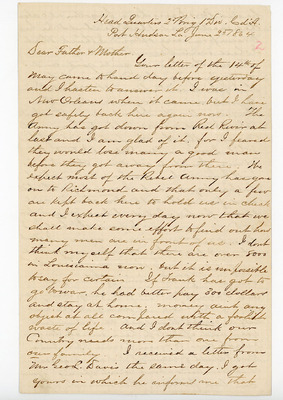 Head Quarters 2d Brig 1st Div. Ind. A.
Port Hudson La June 2d 1864
Dear Father & Mother
Your letter of the 14th of
May came to hand day before yesterday
and I hasten to answer it. I was in
New Orleans when it came but I have
got safely back here again now. The
Army has got down from Red River at
last and I am glad of it. for I feared
they would lose many a good man
before they got away from there. We
expect most of the Rebel Army has gone
on to Richmond and that only a few
are kept back here to hold us in check
and I expect every day now that we
shall make some effort to find out how
many men are in front of us. I dont
think myself that there are over 5000
in Louisiana now but it is impossible
to say for certain If Frank has got to
go to war he had better pay 300 dollars
and stay at home money aint no
object at all compared with a foolish
waste of life And I dont think our
Country needs more than one from
our family I received a letter from
Mr Geo L. Davis the same day I got
yours in which he informs me that